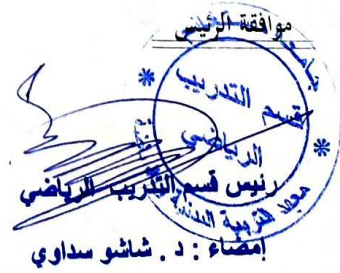 موافقة الرئيس
قسم التدريب
الرياضي
معهد التربية البدنية
رئيس قسم التدريب الرياضي
إمضاء : د . شاشو سداوي